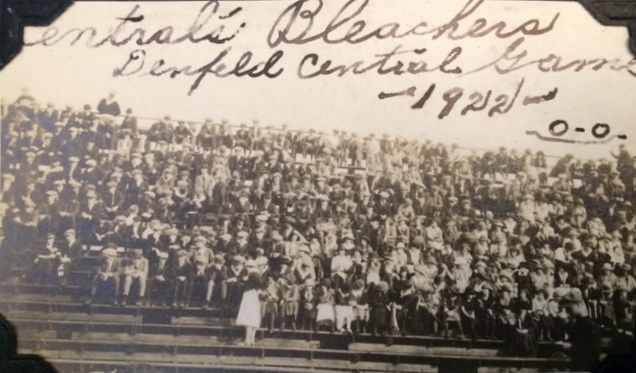 entral's Bleachers
Denfeld Central Game
-1922-
0-0.